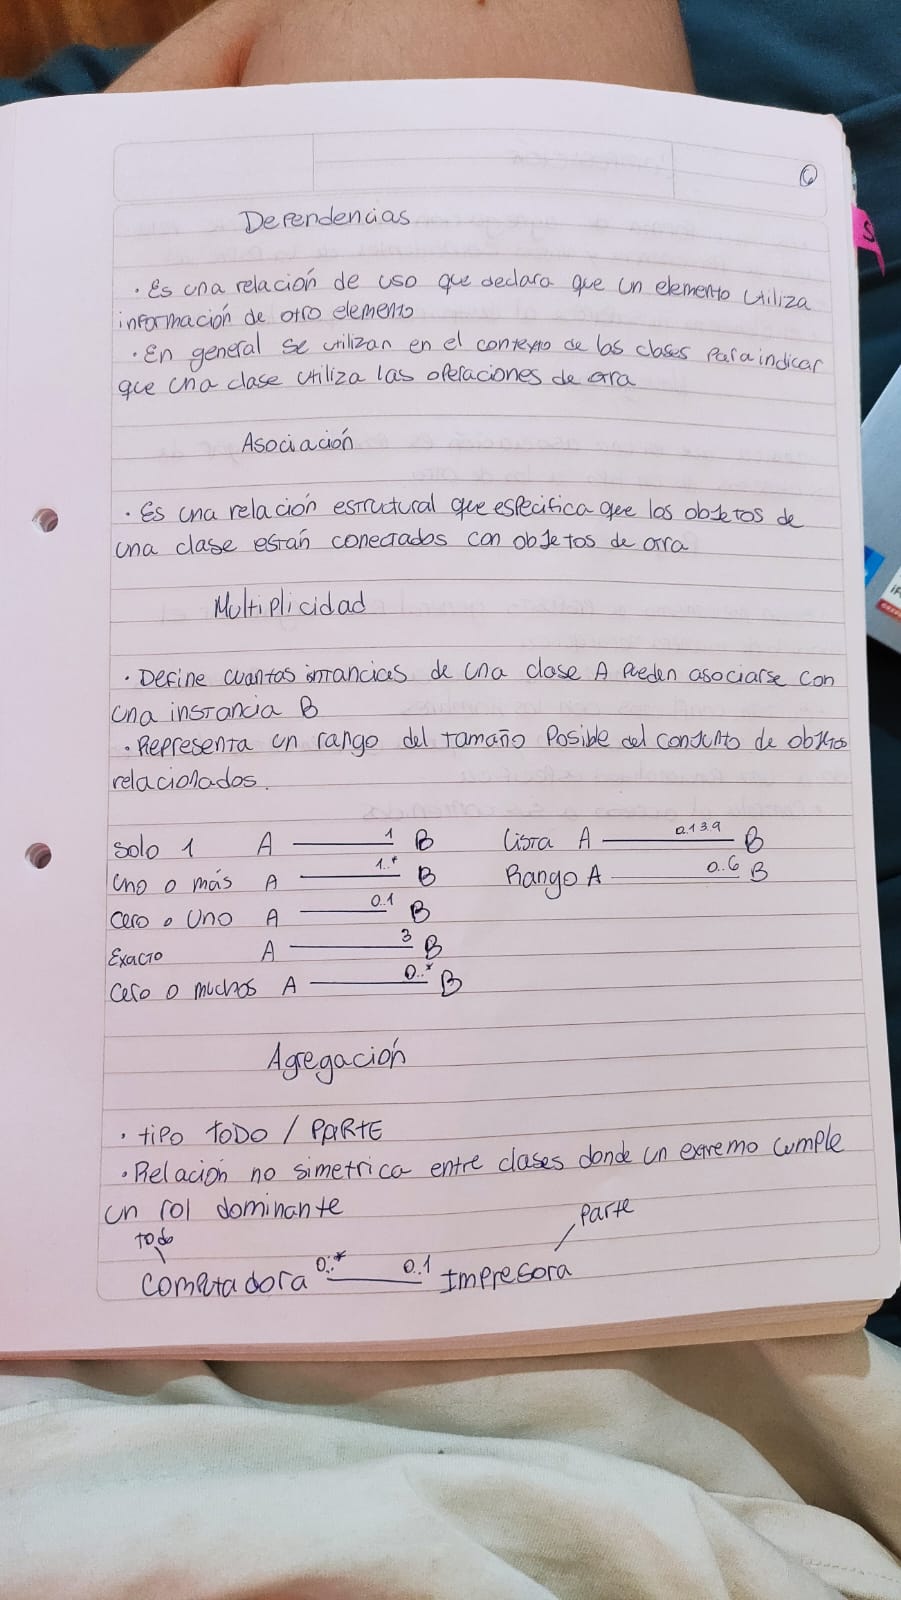 6
Dependencias
· Es una relación de uso que declara que un elemento utiliza
información de otro elemento
· En general se utilizan en el contexto de las clases para indicar
que una clase utiliza las operaciones de otra
Asociación
· Es una relación estructural que especifica que los objetos de
una clase están conectados con objetos de otra
Multiplicidad
· Define cuantas instancias de una clase A pueden asociarse con
una instancia B
· Representa un rango del tamaño posible del conjunto de objetos
relacionados.
solo 1 A 1 B Lista A 0.1.3.9 B
Uno o más A 1..* B Rango A 0..6 B
Cero o Uno A 0.1 B
Exacto A 3 B
Cero o muchos A 0..* B
Agregación
· tipo TODO / PARTE
· Relación no simetrica entre clases donde un extremo cumple
un rol dominante
todo Parte
Computadora 0..* 0.1 Impresora